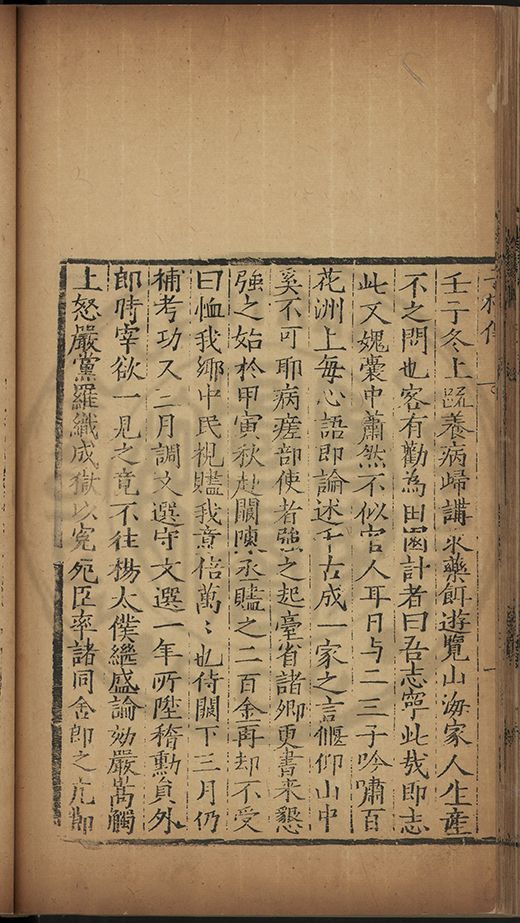 壬子冬上疏養病歸講求藥餌遊覽山海家人生產
不之問也客有勸為田園計者曰吾志寧此哉即志
此又媿囊中蕭然不似官人耳日与二三子吟嘯百
花洲上每心語即論述千古成一家之言偃仰山中
奚不可聊病瘥部使者強之起臺省諸卿更書来懇
強之始於甲寅秋赴闕陳丞贐之二百金再却不受
曰恤我鄉中民視贐我意倍萬〻也侍闕下三月仍
補考功又二月調文選守文選一年所陞稽勳員外
郎時宰欲一見之竟不往楊太僕繼盛論劾嚴嵩觸
上怒嚴黨羅織成獄以寃死臣率諸同舍郎之